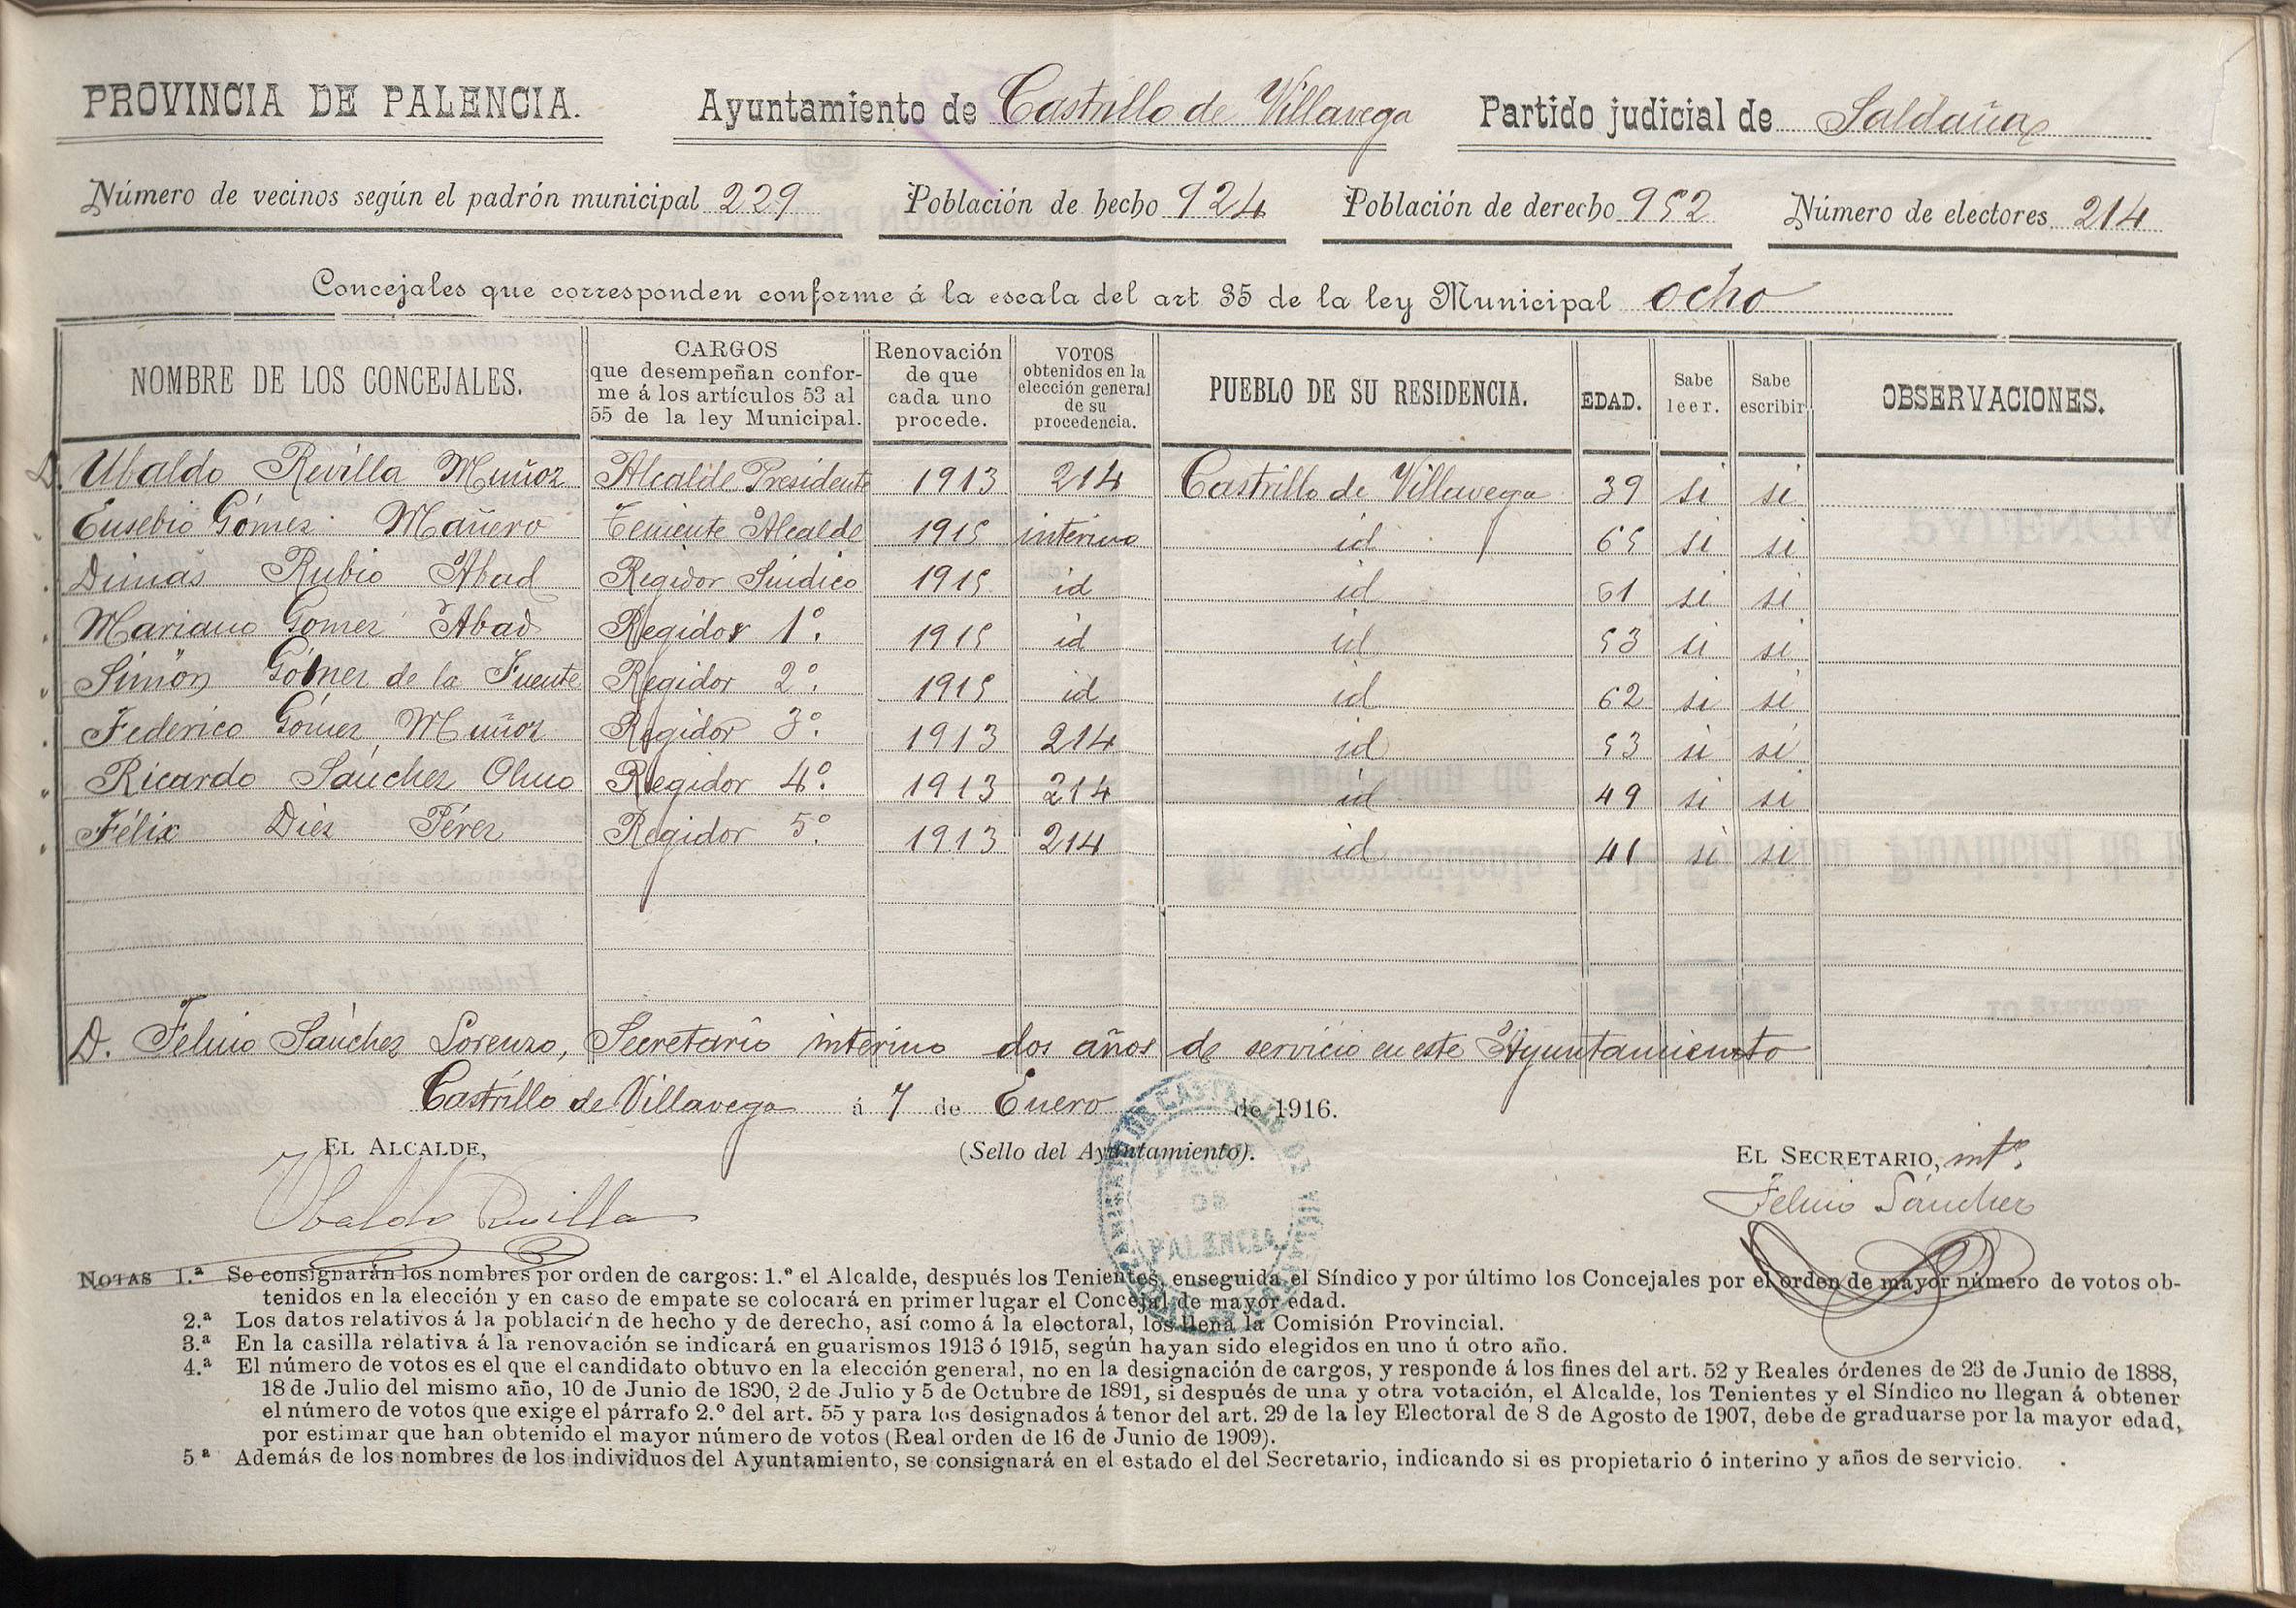 PROVINCIA DE PALENCIA. Ayuntamiento de Castrillo de Villavega Partido judicial de Saldaña
Número de vecinos según el padrón municipal 229 Población de hecho 924 Población de derecho 952 Número de electores 214
Concejales que corresponden conforme á la escala del art 35 de la ley Municipal ocho
NOMBRE DE LOS CONCEJALES. CARGOS que desempeñan conforme á los artículos 53 al 55 de la ley Municipal. Renovación de que cada uno procede. VOTOS obtenidos en la elección general de su procedencia. PUEBLO DE SU RESIDENCIA. EDAD. Sabe leer. Sabe escribir OBSERVACIONES.
D. Ubaldo Revilla Muñoz Alcalde Presidente 1913 214 Castrillo de Villavega 39 si si
" Eusebio Gómez Mañero Teniente Alcalde 1915 interino id 65 si si
" Dimas Rubio Abad Regidor Sindico 1915 id id 61 si si
" Mariano Gomez Abad Regidor 1º. 1915 id id 53 si si
" Simón Gómez de la Fuente Regidor 2º. 1915 id id 62 si si
" Federico Gómez Muñoz Regidor 3º. 1913 214 id 53 si si
" Ricardo Sánchez Olmo Regidor 4º. 1913 214 id 49 si si
" Félix Diez Pérez Regidor 5º. 1913 214 id 41 si si
D. Felino Sánchez Lorenzo, Secretario interino dos años de servicio en este Ayuntamiento
Castrillo de Villavega á 7 de Enero de 1916.
EL ALCALDE, (Sello del Ayuntamiento). EL SECRETARIO, intº.
Ubaldo Revilla Felino Sánchez
PROV
DE
PALENCIA
NOTAS 1.ª Se consignarán los nombres por orden de cargos: 1.º el Alcalde, después los Tenientes, enseguida el Síndico y por último los Concejales por el orden de mayor número de votos ob-
tenidos en la elección y en caso de empate se colocará en primer lugar el Concejal de mayor edad.
2.ª Los datos relativos á la población de hecho y de derecho, así como á la electoral, los llena la Comisión Provincial.
3.ª En la casilla relativa á la renovación se indicará en guarismos 1913 ó 1915, según hayan sido elegidos en uno ú otro año.
4.ª El número de votos es el que el candidato obtuvo en la elección general, no en la designación de cargos, y responde á los fines del art. 52 y Reales órdenes de 23 de Junio de 1888,
18 de Julio del mismo año, 10 de Junio de 1890, 2 de Julio y 5 de Octubre de 1891, si después de una y otra votación, el Alcalde, los Tenientes y el Síndico no llegan á obtener
el número de votos que exige el párrafo 2.º del art. 55 y para los designados á tenor del art. 29 de la ley Electoral de 8 de Agosto de 1907, debe de graduarse por la mayor edad,
por estimar que han obtenido el mayor número de votos (Real orden de 16 de Junio de 1909).
5.ª Además de los nombres de los individuos del Ayuntamiento, se consignará en el estado el del Secretario, indicando si es propietario ó interino y años de servicio.